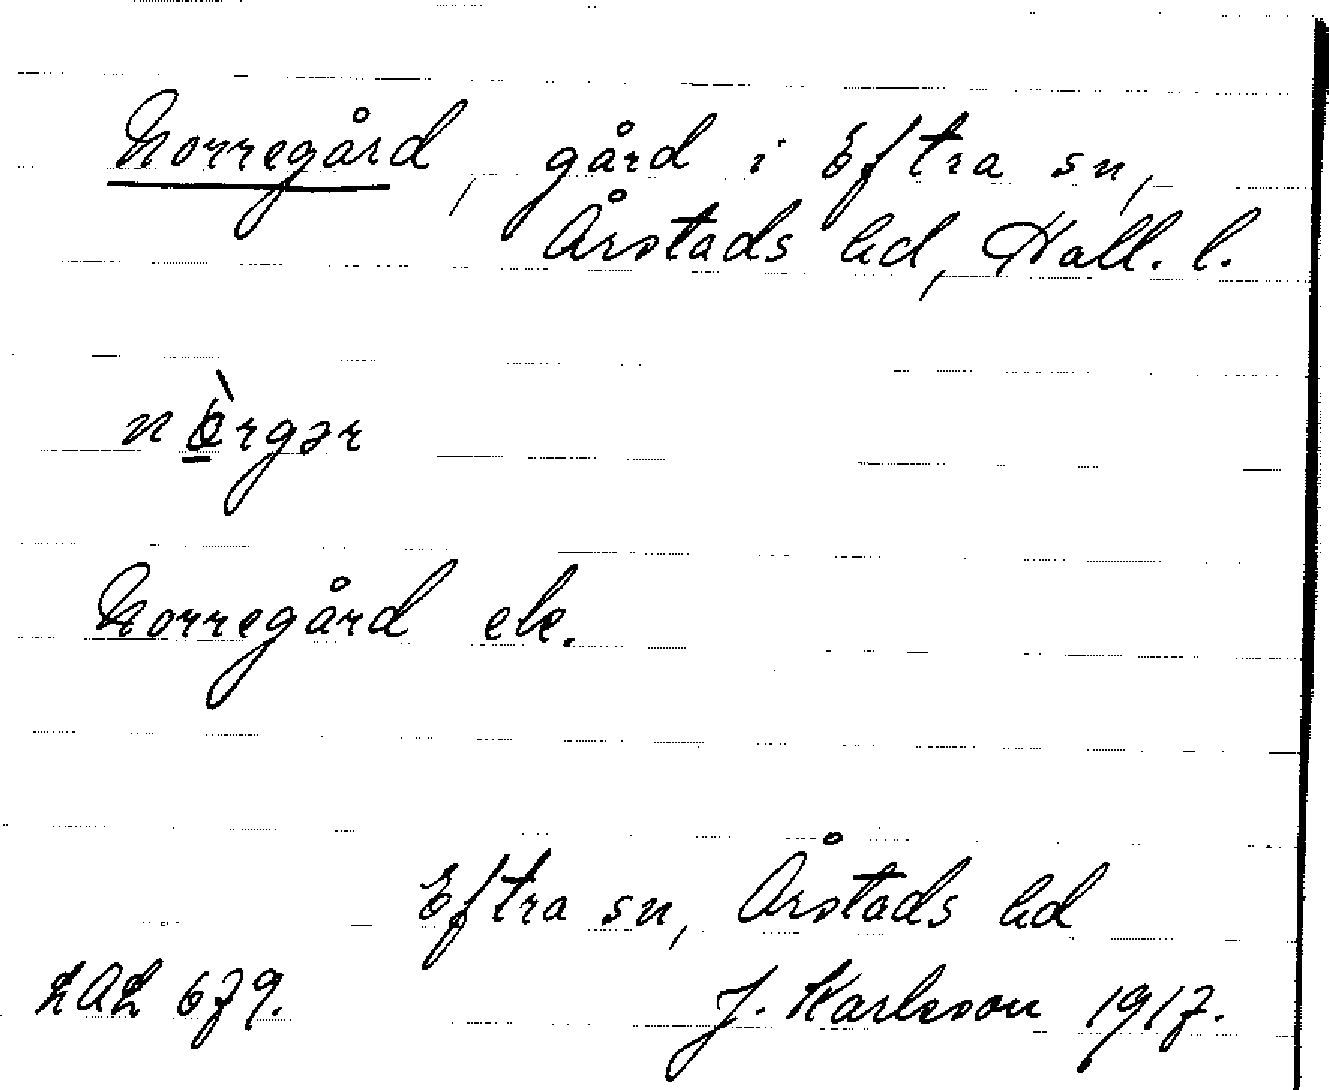 Norregård, gård i Eftra sn,
Årstads hd, Hall. l.
nòrgər
Norregård ek.
Eftra sn, Årstads hd
LAL 679.
J. Karlsson 1917.